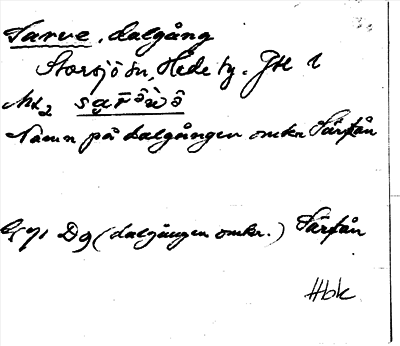 Sarve, dalgång
Storsjö sn, Hede tg. Jtl l
Namn på dalgången omkr Särfån
Dg (dalgången omkr.) Särfån
Hbk